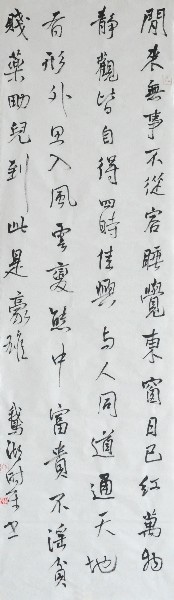 閒來無事不從容睡覺東窗日已紅萬物
靜觀皆自得四時佳興與人同道通天地
有形外思入風雲變態中富貴不淫貧
賤樂男兒到此是豪雄